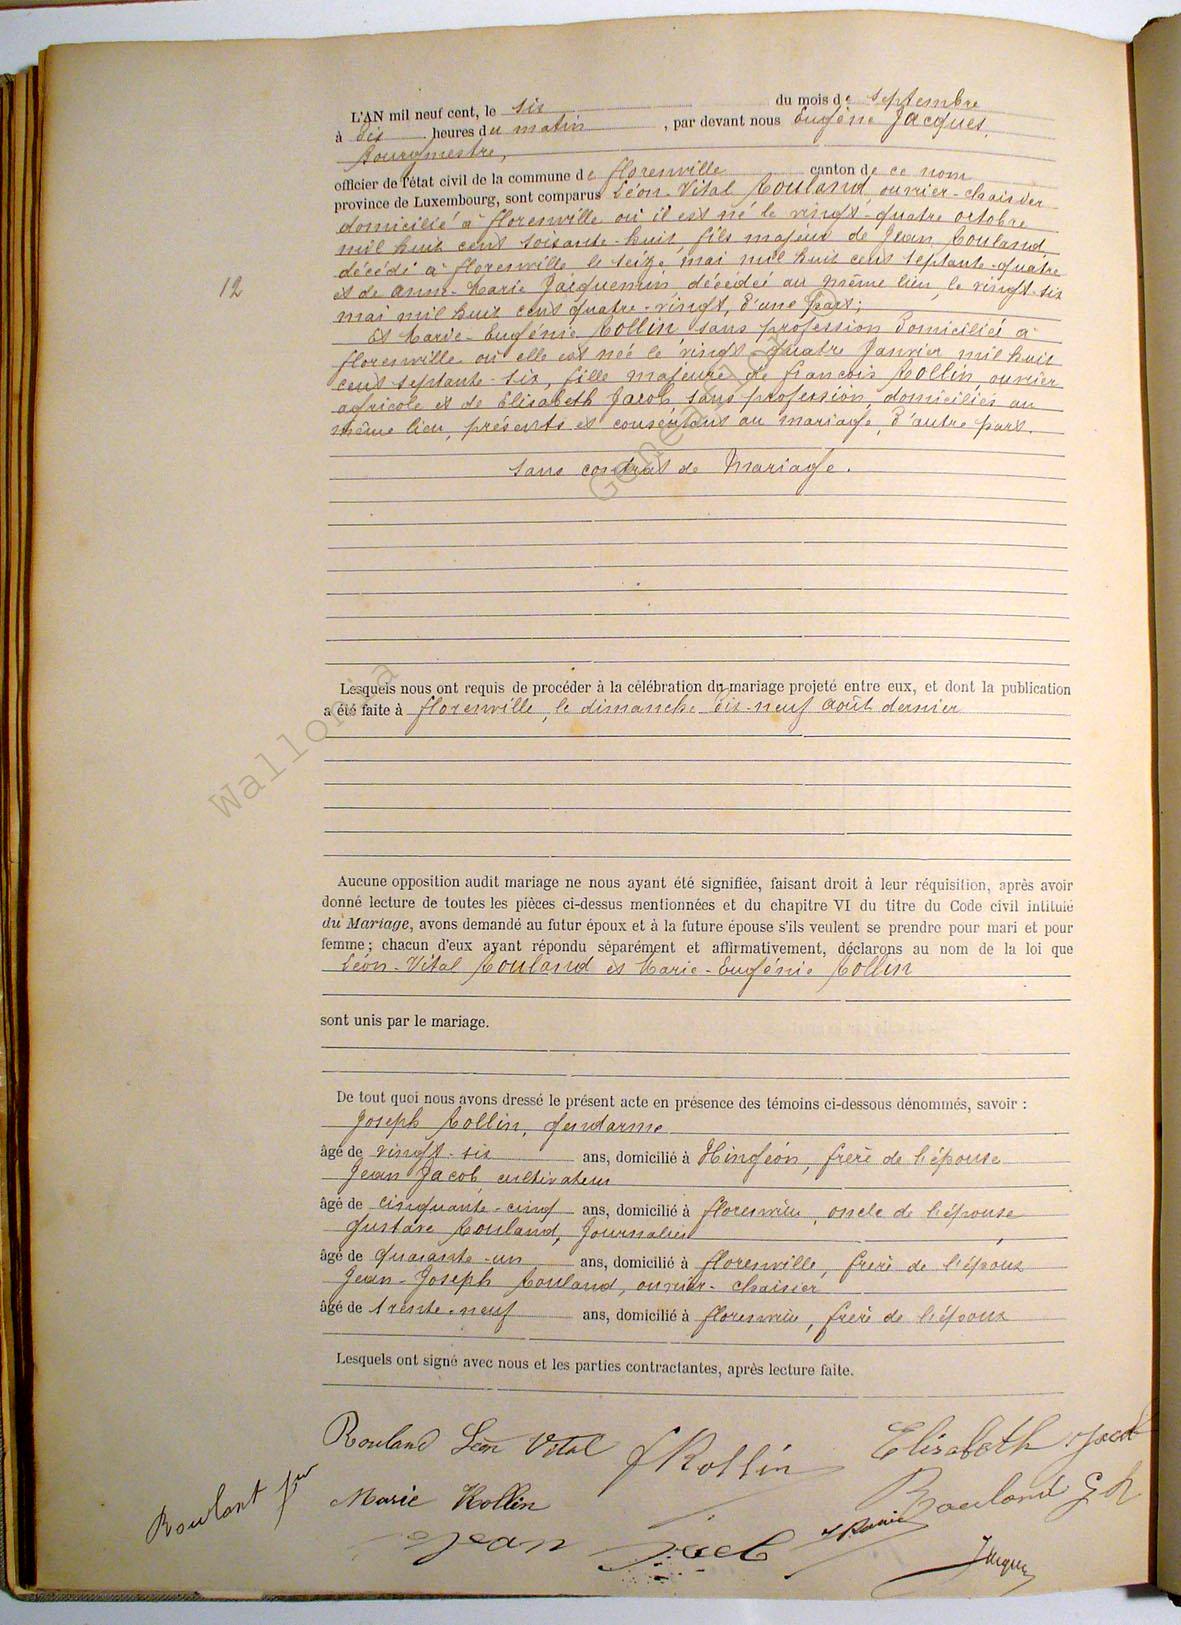 L'AN mil neuf cent, le six du mois de Septembre
à dix heures du matin, par devant nous Eugène Jacques,
Bourgmestre,
officier de l'état civil de la commune de Florenville canton de ce nom
province de Luxembourg, sont comparus Léon-Vital Rouland, ouvrier-chaisier
domicilié à Florenville où il est né le vingt-quatre octobre
mil huit cent soixante-huit, fils majeur de Jean Rouland,
décédé à Florenville le seize mai mil huit cent septante-quatre
12
et de Anne-Marie Jacquemin, décédée au même lieu, le vingt-six
mai mil huit cent quatre-vingt, d'une part;
Et Marie-Eugénie Rollin, sans profession domiciliée à
Florenville où elle est née le vingt-quatre Janvier mil huit
cent septante-six, fille majeure de François Rollin, ouvrier
agricole et de Elisabeth Jacob, sans profession, domiciliés au
même lieu, présents et consentant au mariage, d'autre part.
Sans contrat de Mariage.
Lesquels nous ont requis de procéder à la célébration du mariage projeté entre eux, et dont la publication
a été faite à Florenville, le dimanche dix-neuf Août dernier
Wallonia
Genealogy
Aucune opposition audit mariage ne nous ayant été signifiée, faisant droit à leur réquisition, après avoir
donné lecture de toutes les pièces ci-dessus mentionnées et du chapitre VI du titre du Code civil intitulé
du Mariage, avons demandé au futur époux et à la future épouse s'ils veulent se prendre pour mari et pour
femme; chacun d'eux ayant répondu séparément et affirmativement, déclarons au nom de la loi que
Léon-Vital Rouland et Marie-Eugénie Rollin
sont unis par le mariage.
De tout quoi nous avons dressé le présent acte en présence des témoins ci-dessous dénommés, savoir :
Joseph Rollin, gendarme
âgé de vingt-six ans, domicilié à Hingéon, frère de l'épouse
Jean Jacob, cultivateur
âgé de cinquante-cinq ans, domicilié à Florenville, oncle de l'épouse
Gustave Rouland, Journalier
âgé de quarante-un ans, domicilié à Florenville, frère de l'époux
Jean-Joseph Rouland, ouvrier-chaisier
âgé de trente-neuf ans, domicilié à Florenville, frère de l'époux
Lesquels ont signé avec nous et les parties contractantes, après lecture faite.
Rouland Léon Vital F Rollin Elisabeth Jacob
Roulant Marie Rollin Rouland G
Jean Jacob Jacques